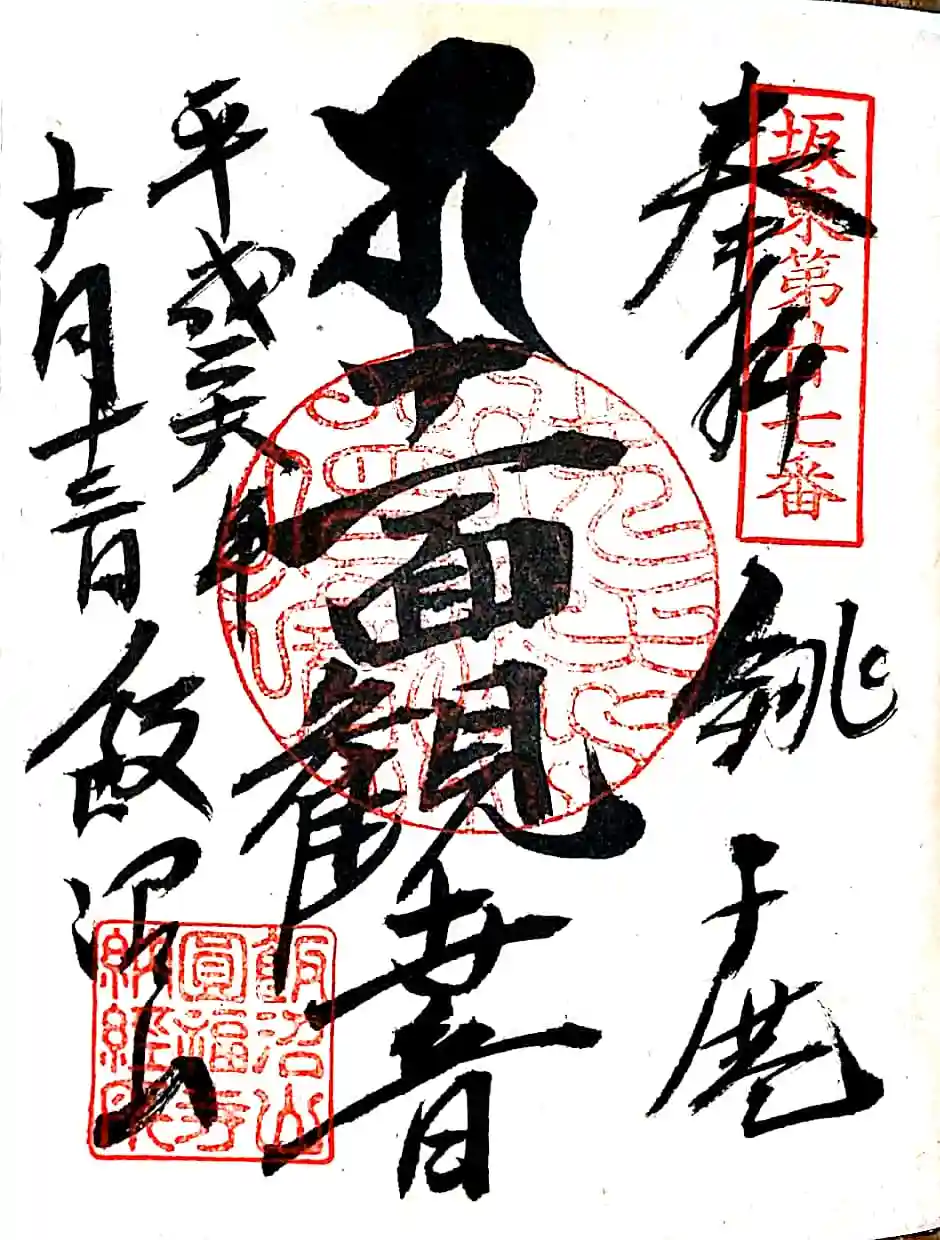 坂東第廿七番
奉拝
銚子港
十一面観音
平成二天年
十月十三日
飯沼山
飯沼山
圓福寺
納経所